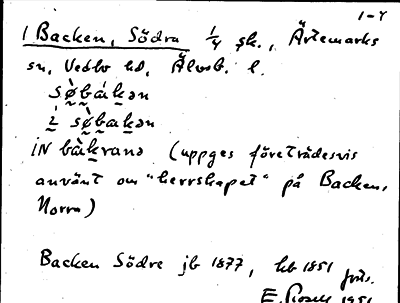 1-4
1 Backen, Södra 1/4 sk., Ärtemarks
sn, Vedbo hd, Älvsb. l.
sø̀bákən
i sø̀bakən
iN bàkrana (uppges företrädesvis
använt om "herrskapet" på Backen,
Norra)
Backen Södre jb 1877, hb 1851
E. 1951